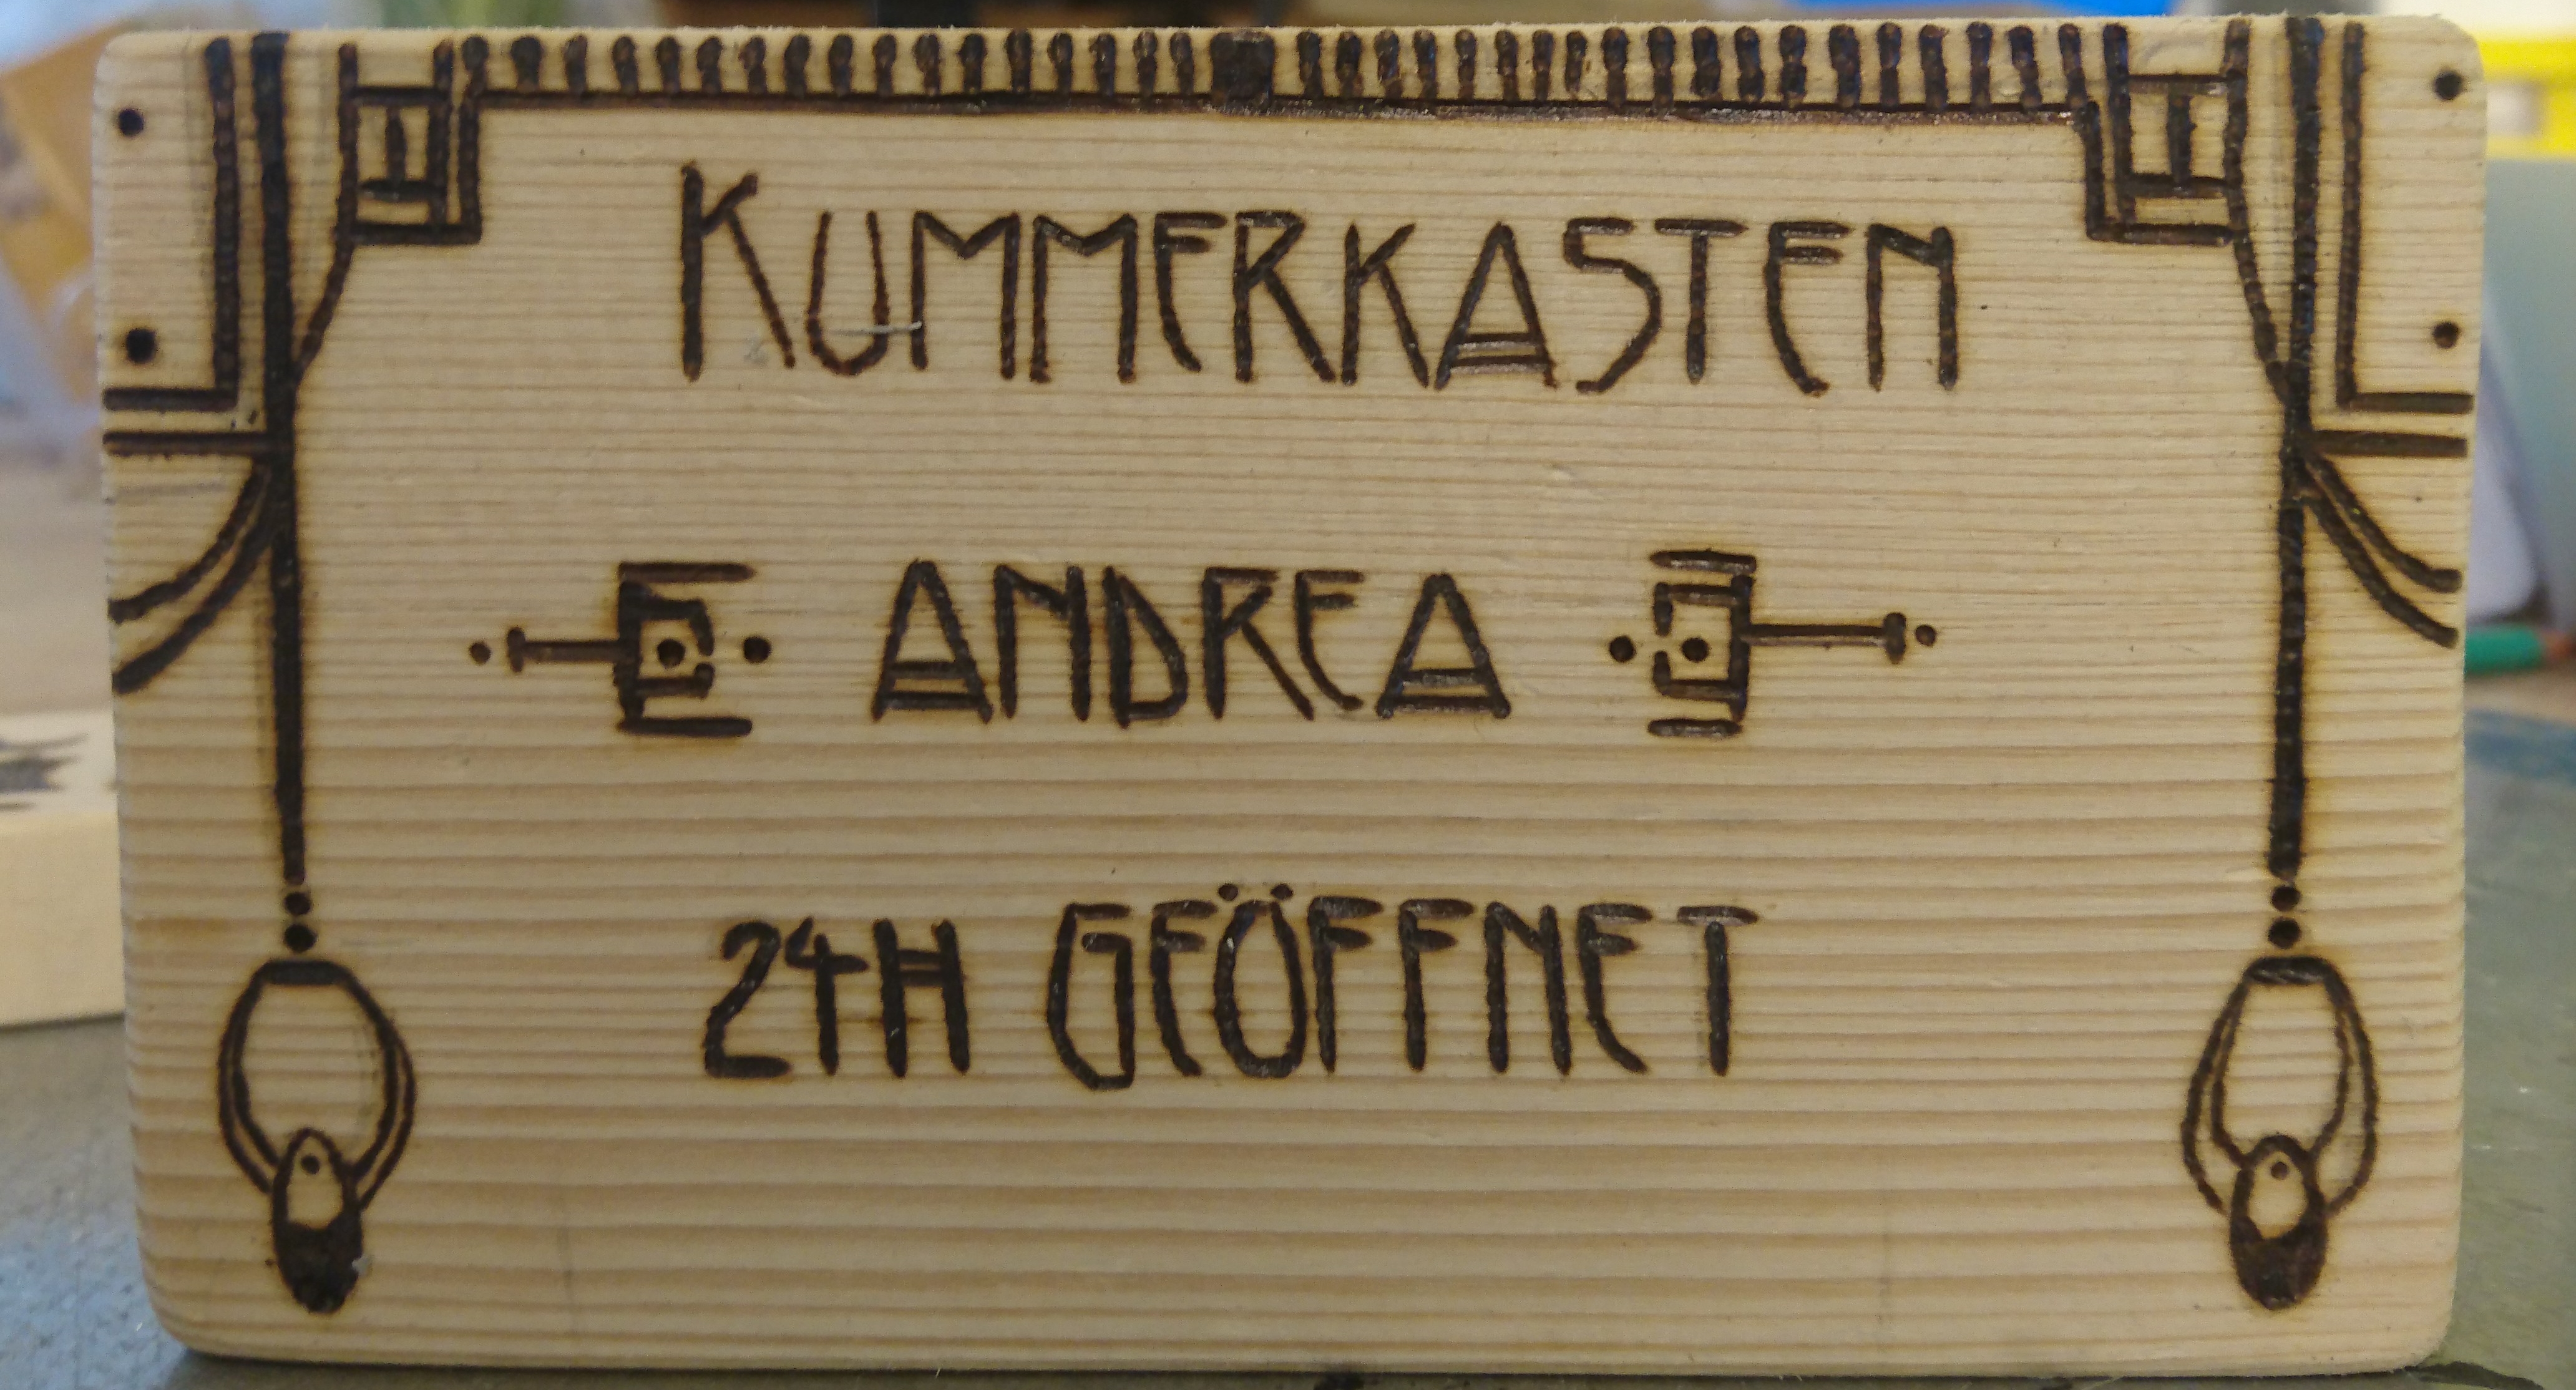 KUMMERKASTEN
ANDREA
24H GEÖFFNET